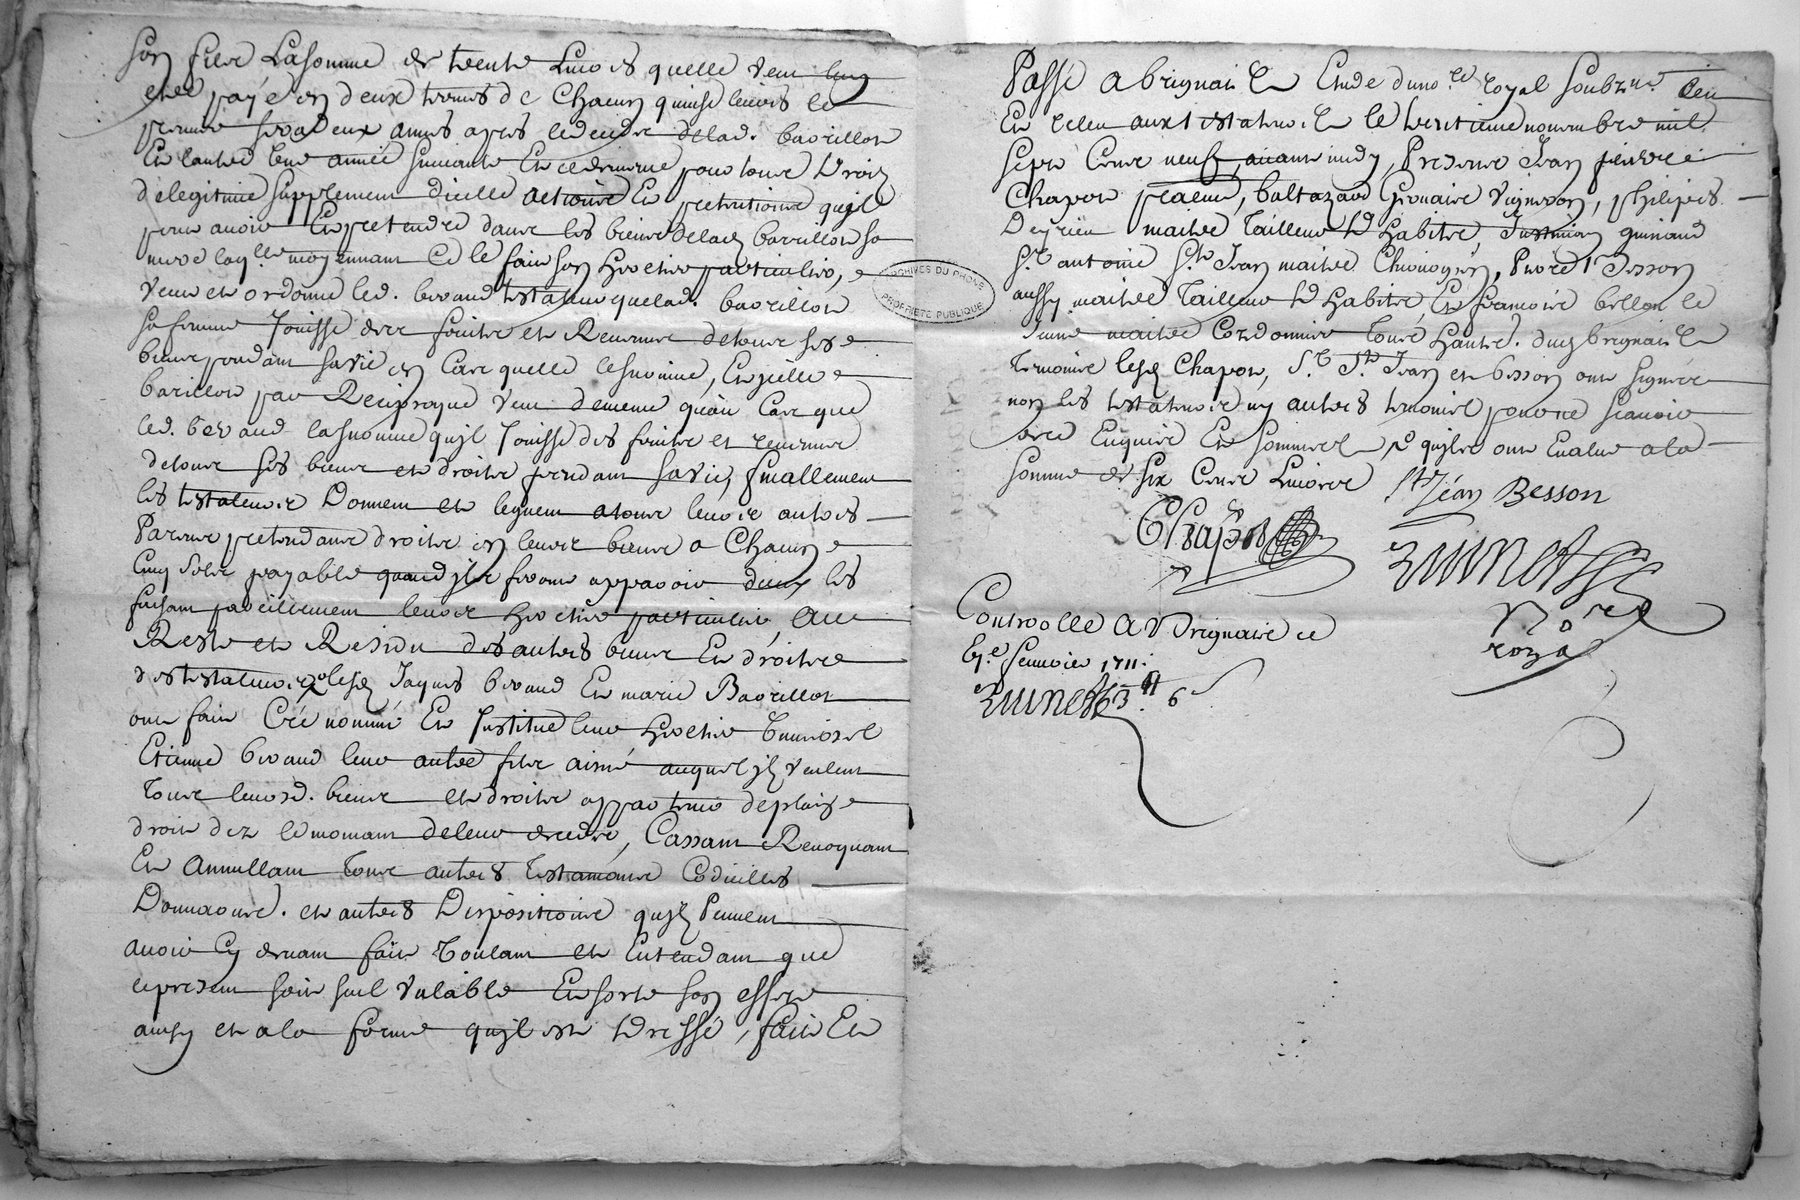 son filz La somme de trente Livres quelle veut luy
estre payé en deux termes de Chacun quinse livres le
premier sera deux Annes apres le deceds de lad. barrillon
Et lautre Une année suivante Et ce derniere pour tous Droitz
de legitime supplement dicelle actions Et pretentions quyl
peut avoir Et pretendre dans les biens de lad barrillon sa
mere laqlle moyennant Ce le fait son heretier particulier,
Veut et ordonne led. beraud testateur que lad. barrillon
sa femme Jouisse des fruitz et Revenus de tous ses
biens pendant sa vie en Cas quelle le survive, Et jcelle
barillon par Reciproque veut de meme quau Cas que
led. beraud la survive quyl Jouisse des fruitz et revenus
de tous ses biens et droitz pendant sa vie, finallement
les testateurs Donnent et leguent a tous leurs autres
Parens pretendans droitz en leurs biens a Chacun
Cinq Solz payable quand jlz feront apparoir deux les
faisant pareillement leurs heretiers particuliers, Au
Reste et Residu des autres biens Et droitz
des testateurs lesd Jaques beraud Et marie Barrillon
ont fait Créé nommé Et Institué leur heretier Universel
Etienne beraud leur autre filz aisné auquel jlz veulent
Tous leursd. biens et droitz appartenir de plain
droit dez le momant de leur deceds, Cassant Revoquant
Et Annullant Tous autres Testamans Codicilles
Donnaons. et autres Dispositions qujlz Peuvent
avoir Cy devant fait Voulant et Entendant que
le present soit seul valable Et sorte son effet
ainsy et a la forme quyl est Dressé, fait Et
Passé a brignais Etude du nore royal soubzne.
Et releu aux testateurs le trentieme novembre mil
sept Cent neuf, avant midy, Presens Jean pierre
Chapon, baltazard Vigneron, philipes
maitre Tailleur Dhabits, guinand
Sr antoine St Jean maitre Chirurgien, Besson
aussy maitre Tailleur Dhabits, Et francois bellon le
Jeune maitre Cordonnier Tous habts. dud brignais
Temoins lesd Chapon, Sr St Jean et besson ont signé
non les testateurs ny autres temoins pour ne scavoir
de ce Enquis Et Sommes, ce qujlz ont Evalué a la
somme de six Cens Livres
St Jéan Besson
Chapon
Brunet
Nore
royal
Controlle A Brignais ce
Janvier 1711.
Brunet
ARCHIVES DU RHONE
PROPRIETE PUBLIQUE